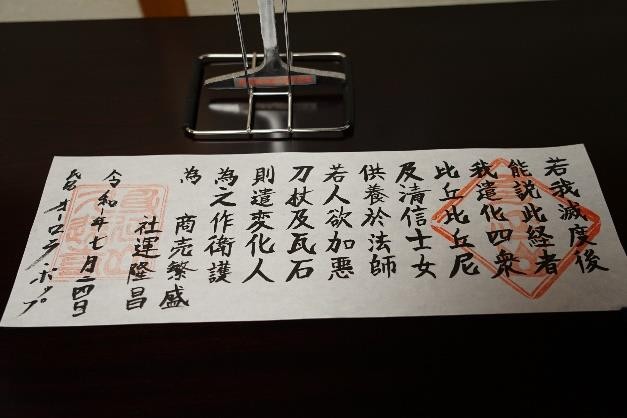 若我滅度後
能説此経者
我遣化四衆
比丘比丘尼
及清信士女
供養於法師
若人欲加悪
刀杖及瓦石
則遣変化人
為之作衛護
為 商売繁盛
社運隆昌
令和 年七月二四日
オーロラポップ